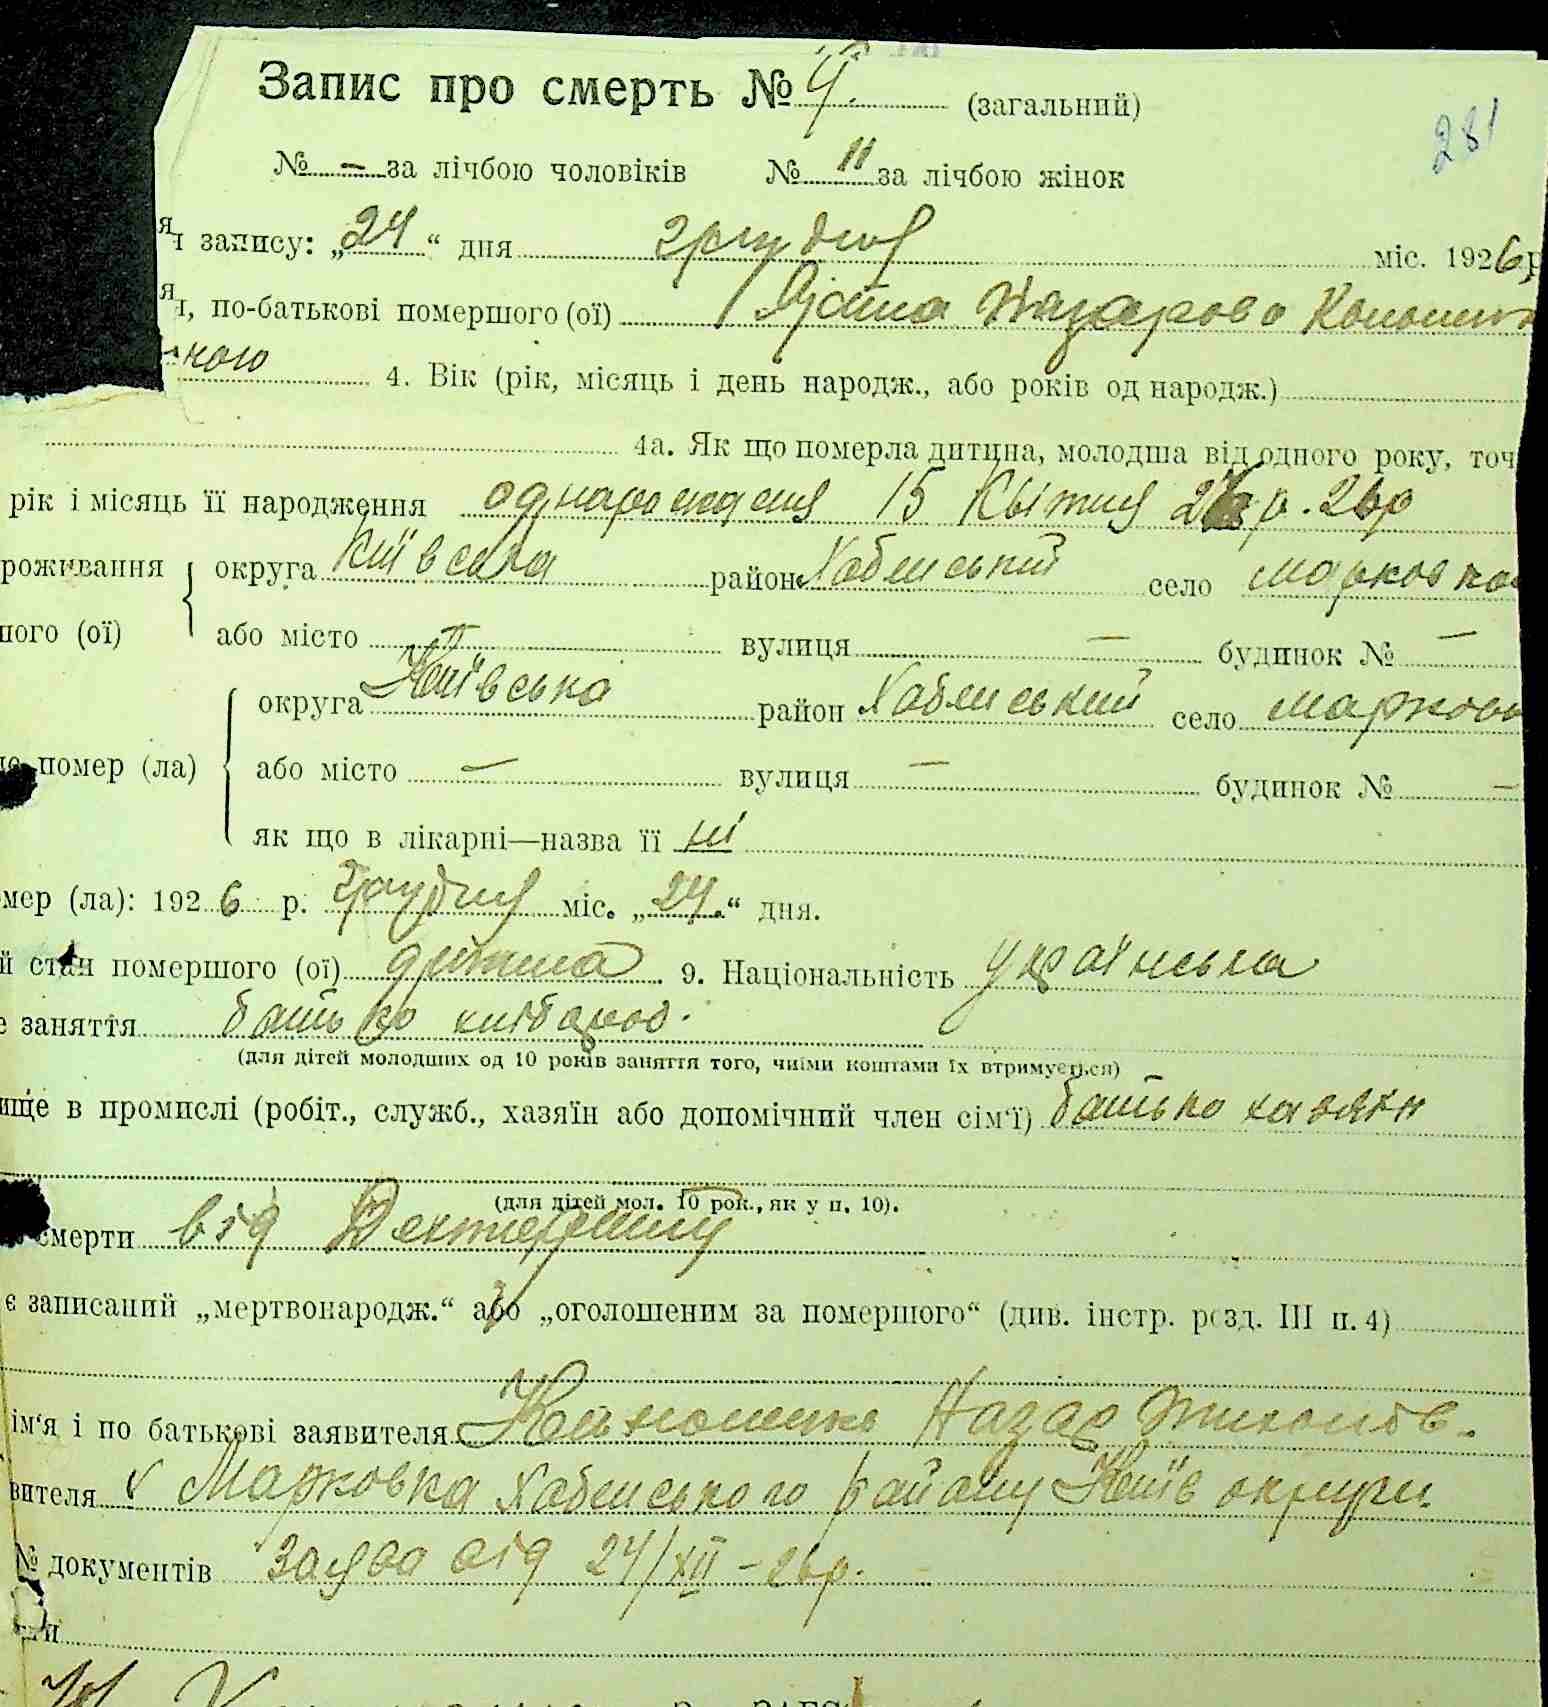 Запис про смерть № 4. (загальний)
281
№ – за лічбою чоловіків № 11 за лічбою жінок
я запису: „24“ дня грудня міс. 1926 р
я, по-батькові помершого (ої) Назарово
4. Вік (рік, місяць і день народж., або років од народж.)
4а. Як що померла дитина, молодша від одного року, точ
рік і місяць її народження однарождения 15 Квітня 26р
роживання округа Київська район Хабенський село Марковка
ного (ої) або місто – вулиця – будинок № –
округа Київська район Хабенський село Марков
помер (ла) або місто – вулиця – будинок № –
як що в лікарні—назва її ні
мер (ла): 1926 р. грудня міс. „24.“ дня.
й стан помершого (ої) дитина. 9. Національність Українська
е заняття батько хлібороб.
(для дітей молодших од 10 років заняття того, чиїми коштами їх втримується)
ище в промислі (робіт., служб., хазяїн або допомічний член сім'ї) батько хазяін
(для дітей мол. 10 рок., як у п. 10).
смерти від
є записаний „мертвонародж.“ або „оголошеним за помершого“ (див. інстр. розд. III п. 4)
ім'я і по батькові заявителя Назар
вителя Марковка Хабенського району Київ округи
№ документів Заява від 24/XII – 26р.
ти